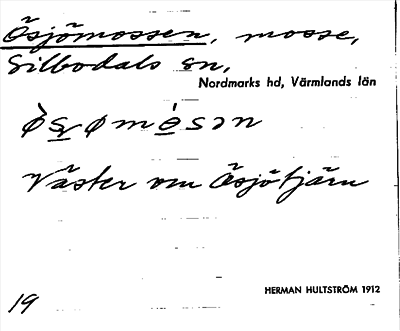 Ösjömossen, mosse,
Silbodals sn,
Nordmarks hd, Värmlands län
Väster om Ösjötjärn
HERMAN HULTSTRÖM 1912
19